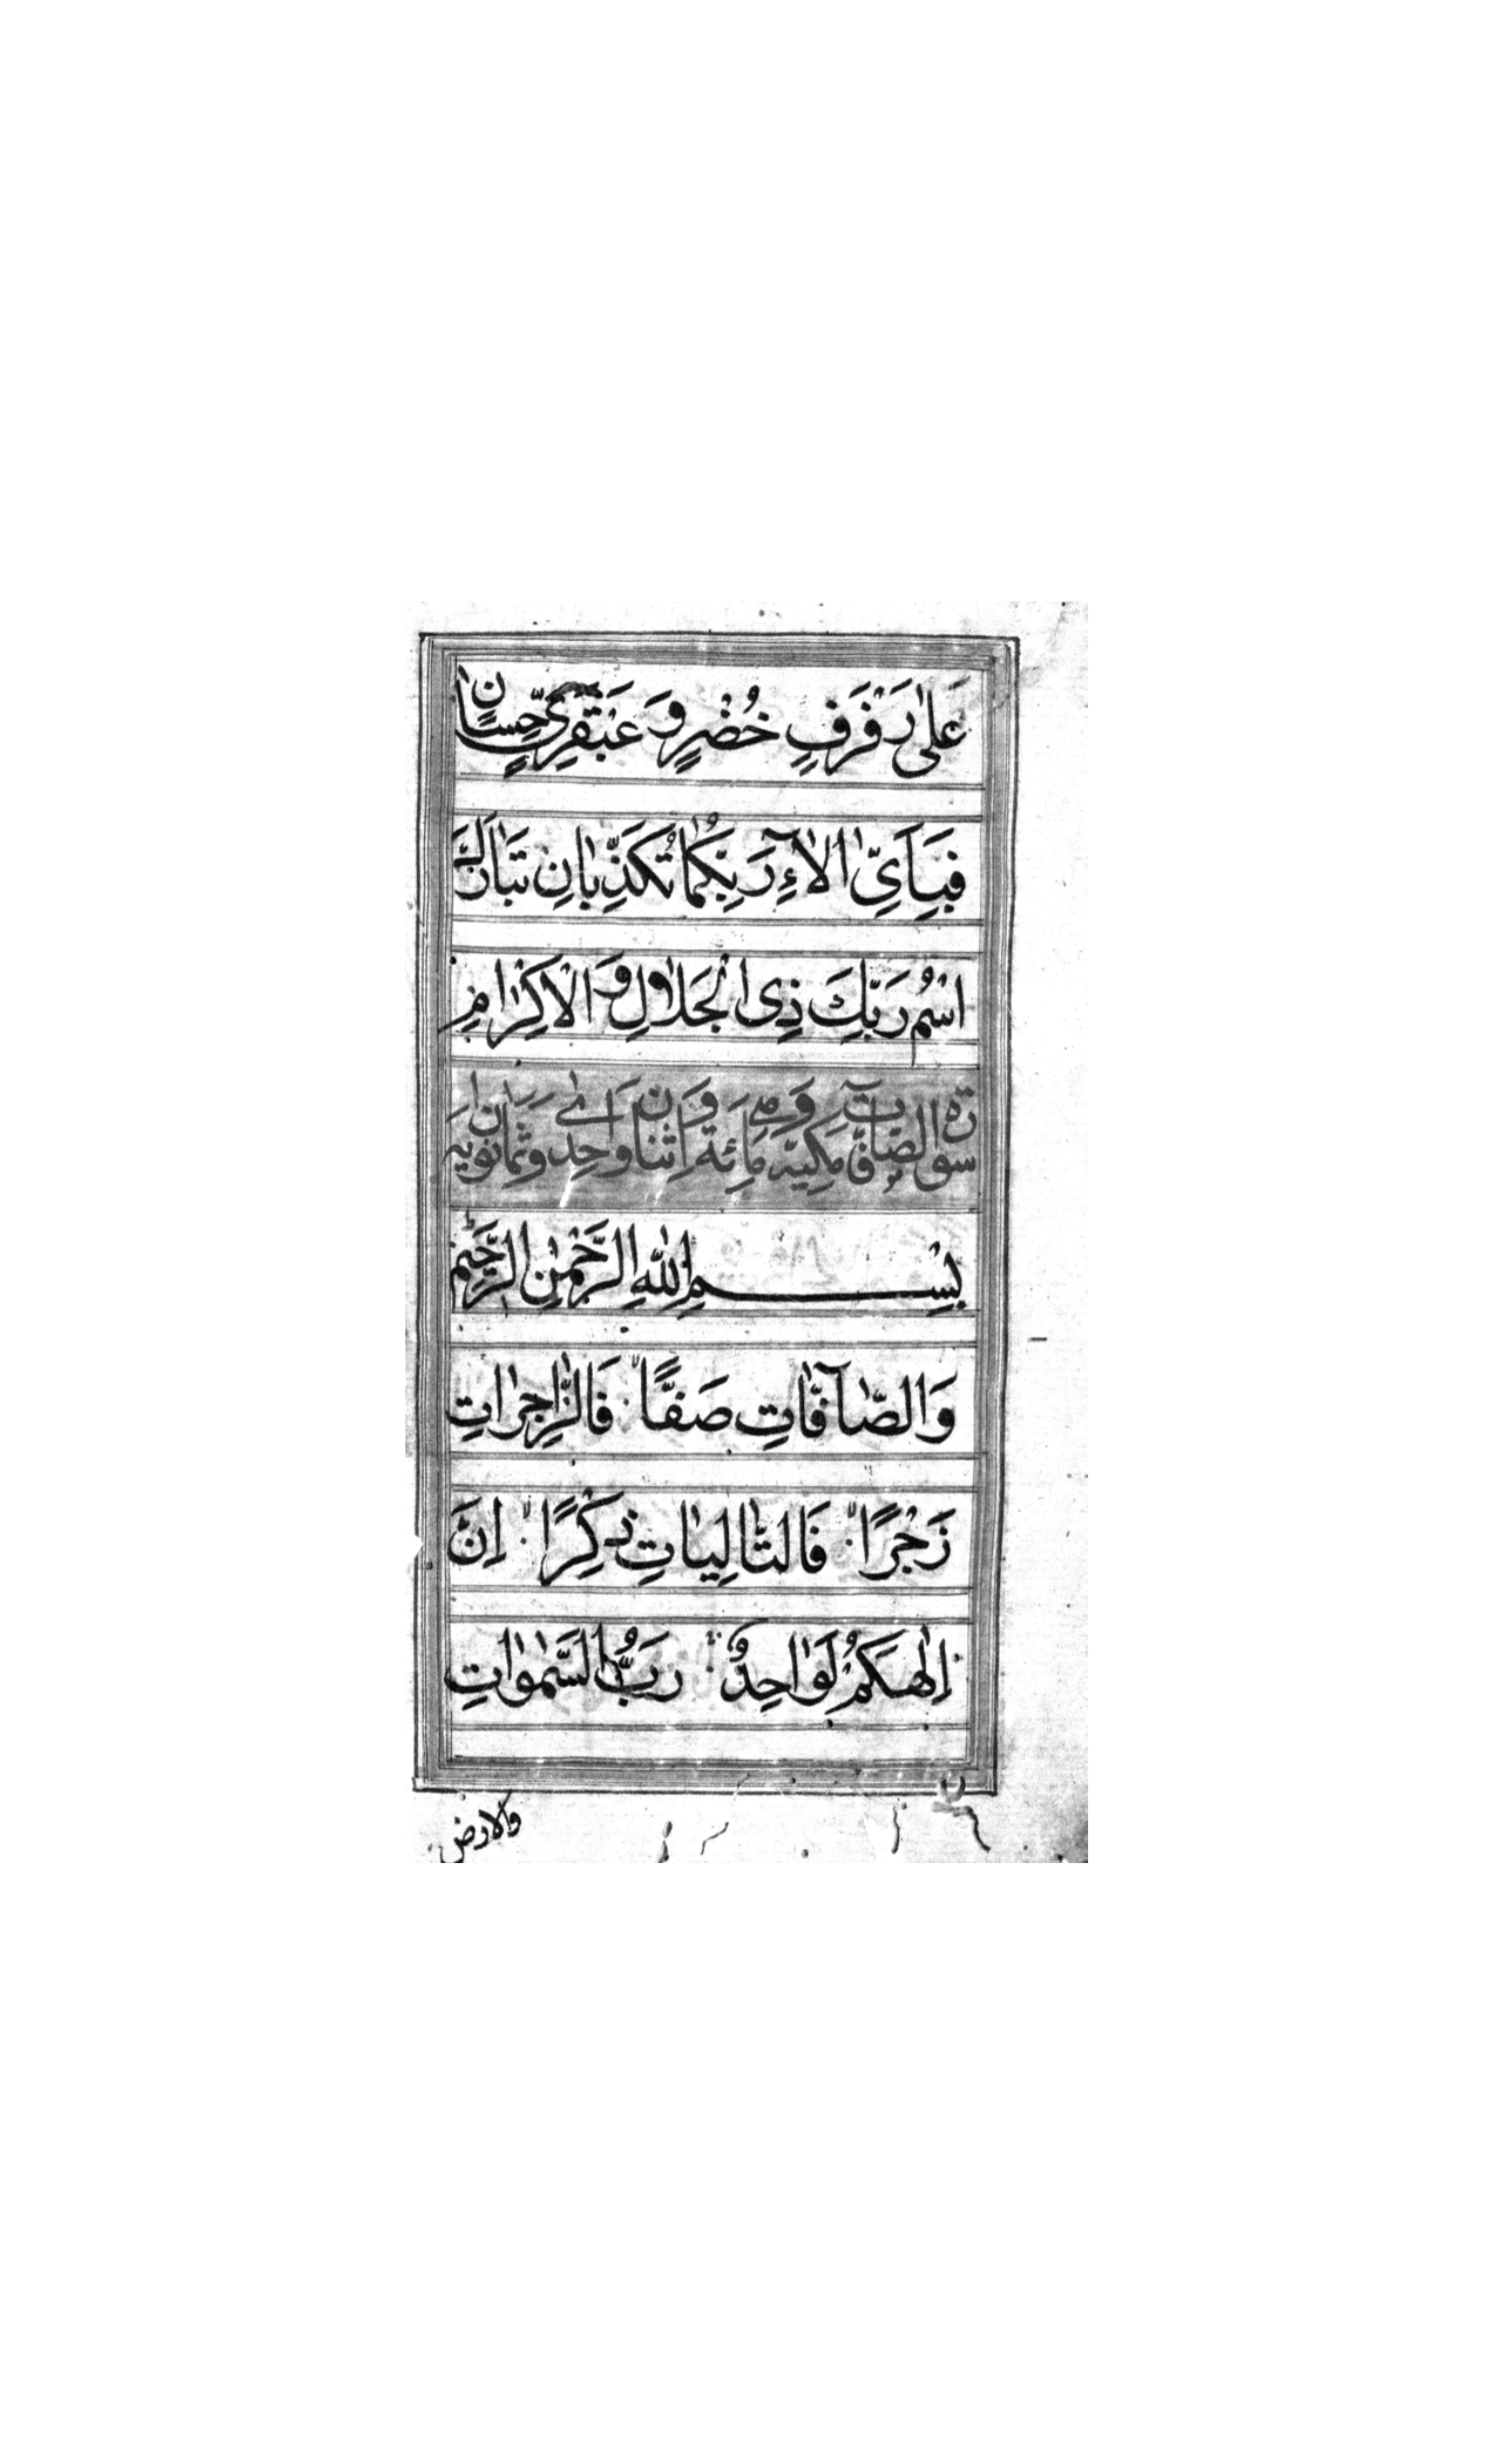 عَلٰى رَفْرَفٍ خُضْرٍ وَّ عَبْقَرِيٍّ حِسَانٍ
فَبِاَيِّ اٰلَآءِ رَبِّكُمَا تُكَذِّبَانِ تَبَارَكَ
اسْمُ رَبِّكَ ذِی الْجَلَالِ وَ الْاِكْرَامِ
سورة الصافات مكية وهي مائة واثنان
بِسْمِ اللّٰهِ الرَّحْمٰنِ الرَّحِيْمِ
وَالصَّآفَّاتِ صَفًّا فَالزَّاجِرَاتِ
زَجْرًا فَالتَّالِيَاتِ ذِكْرًا اِنَّ
اِلٰهَكُمْ لَوَاحِدٌ رَبُّ السَّمٰوَاتِ
والارض